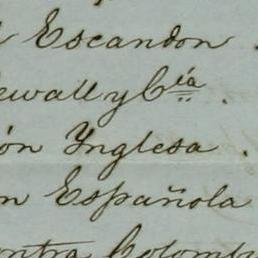 Escandon .
ewall y Cía .
ón Ynglesa .
n Española
ontra Colomb